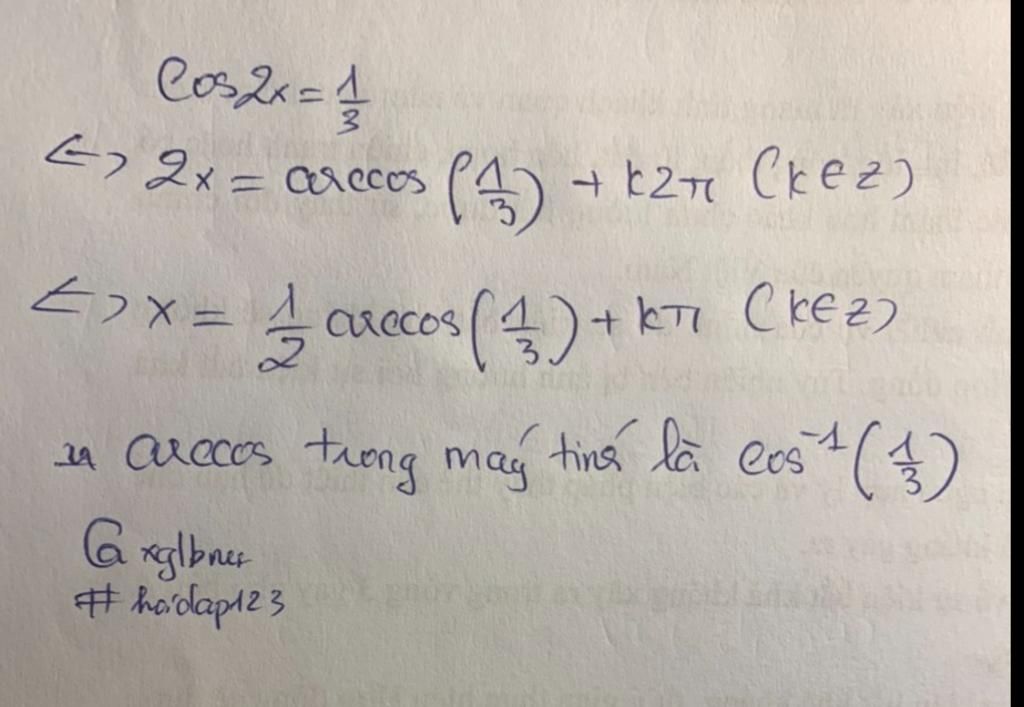 Cos2x = 1/3
<=> 2x = arccos (1/3) + k2π (k∈Z)
<=> x = 1/2 arccos (1/3) + kπ (k∈Z)
arccos trong máy tính là cos⁻¹ (1/3)
@xglbner
#hoidap123